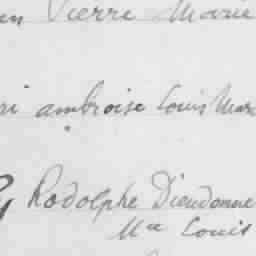 en Pierre Marie
ri ambroise Louis Mar
Rodolphe Dieudonne
Mie Louis